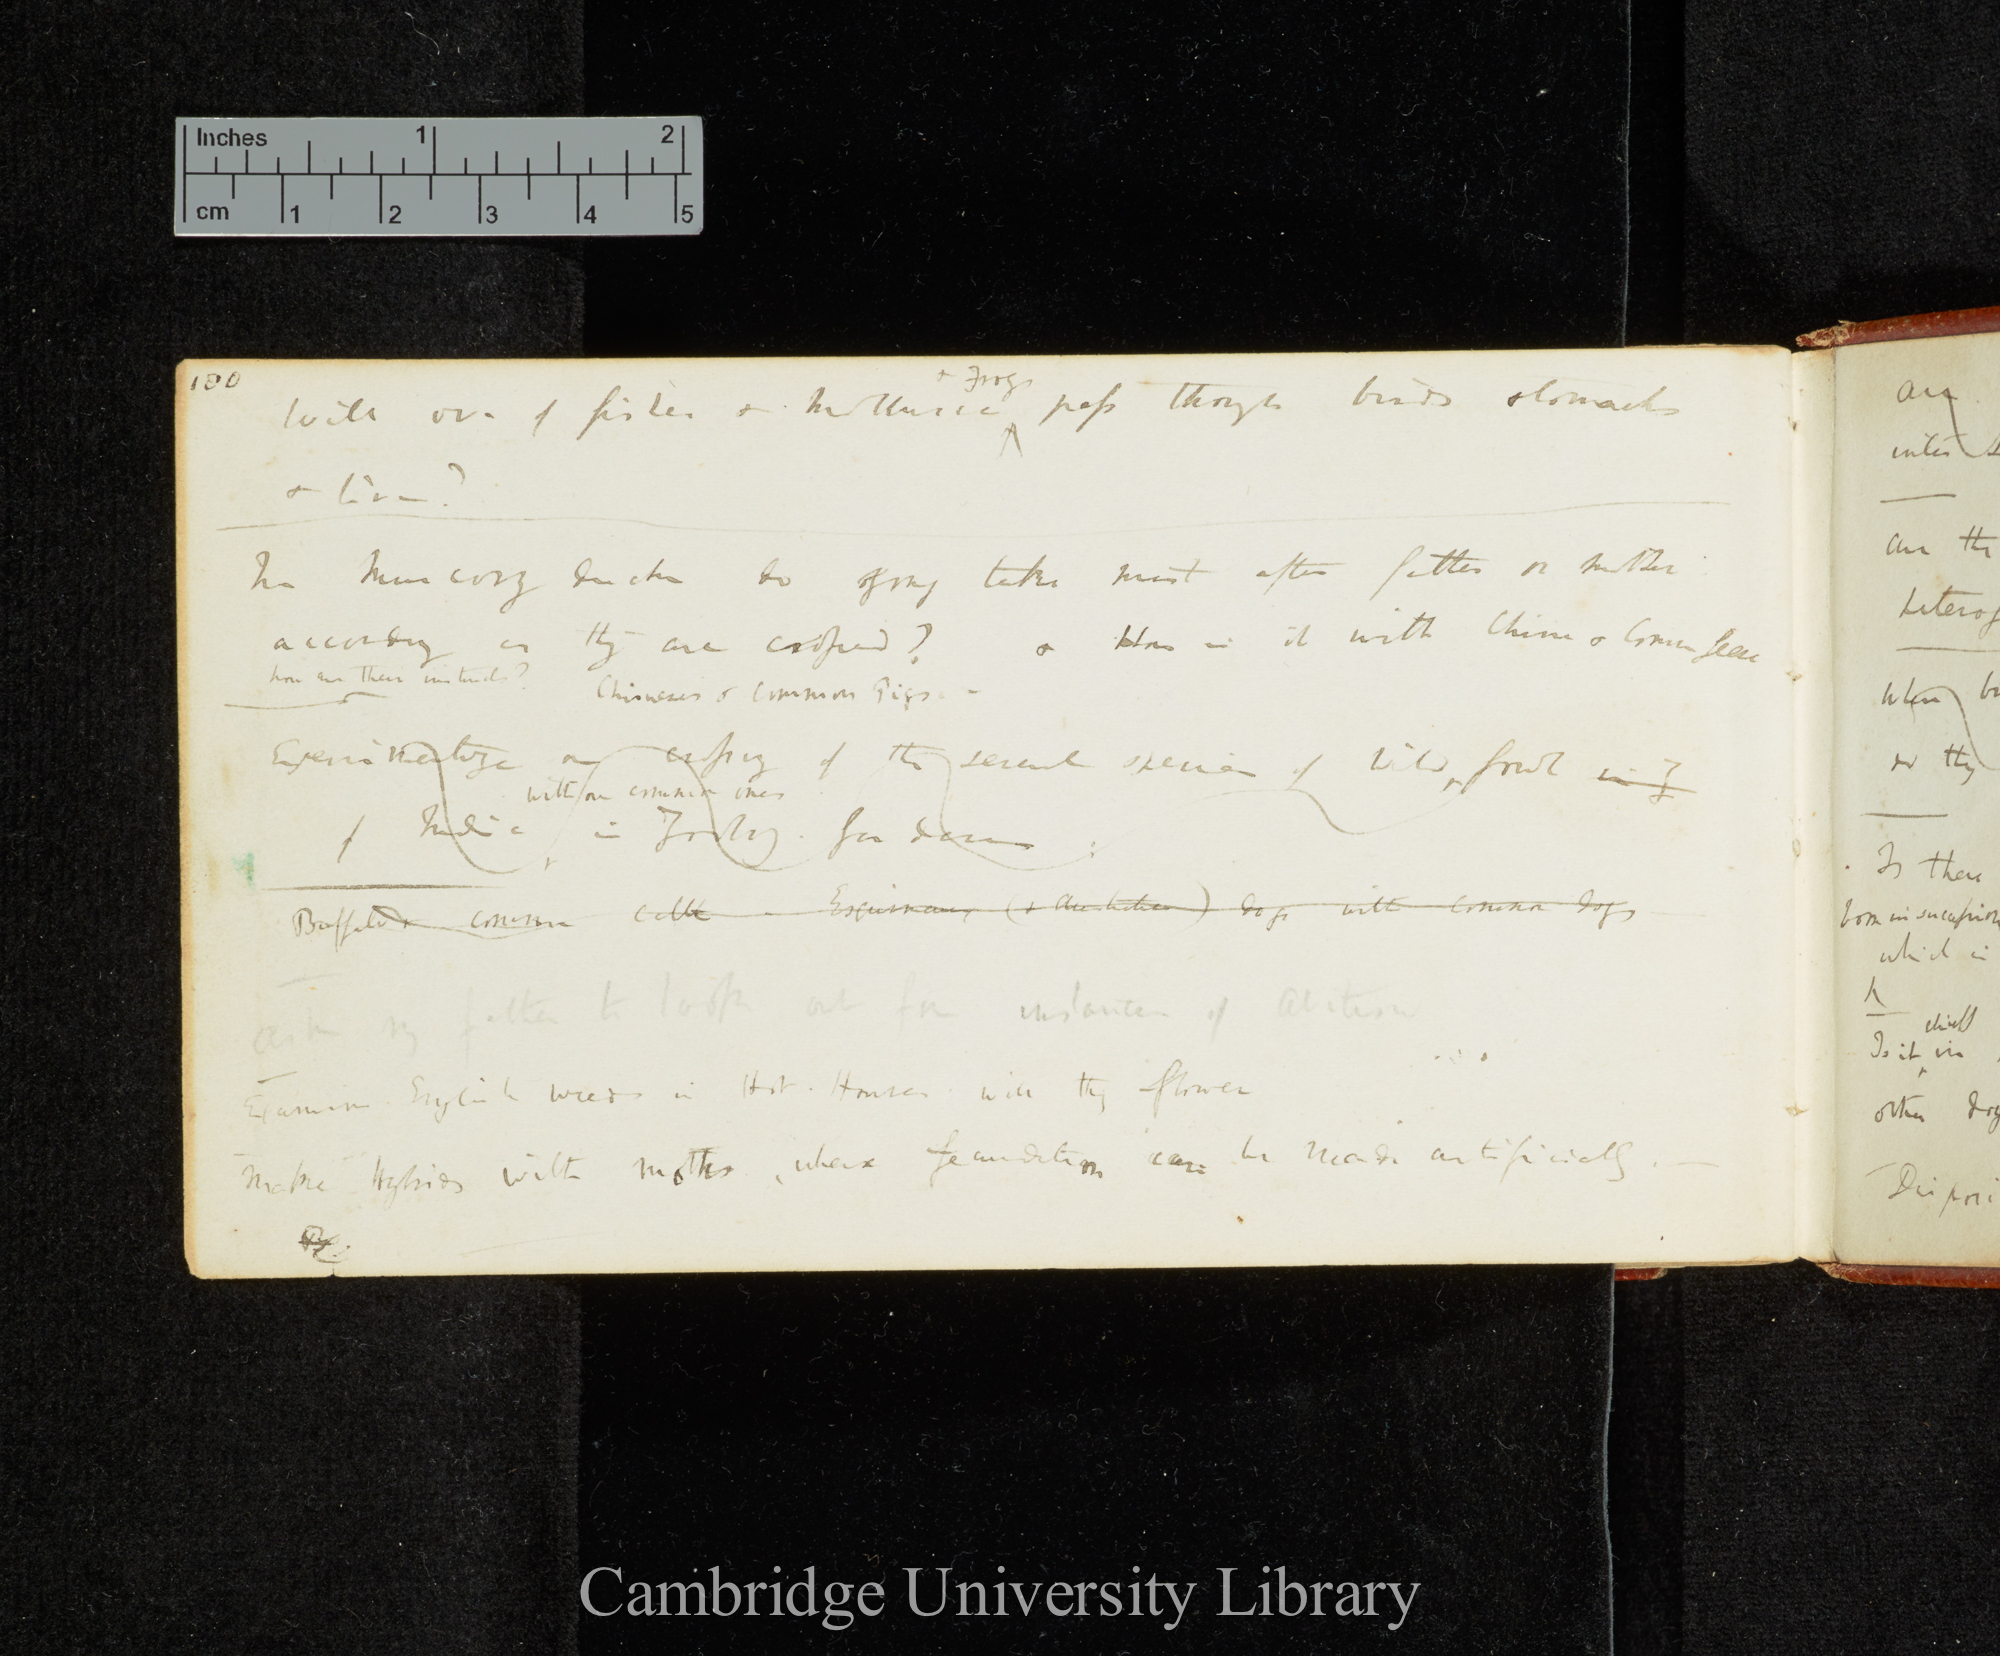 Inches 1 2
cm 1 2 3 4 5
180
+ Frogs
Will ova of fishes & Mollusca pass through birds stomachs
& live?
In Muscovy ducks do offspring take most after father or mother
according as they are crossed? & How is it with China & Common Geese
how are their instincts? Chineses & common Pigs –
Experimentize on crossing of the several species of wild fowl in Z
with our common ones
of India in Zoolog. Gardens
Buffalo & common cattle – Esquimaux (& Australian) dogs with common dogs
Ask my father to look out for instances of
Examine English weeds in Hot-Houses will they flower
Make Hybrids with moths, where fecundation can be made artificially. —
are
inter
are the
heterog
when br
do they
Is there
born in succession
which is
h
child
Is it in
other dog
Disposi
Cambridge University Library